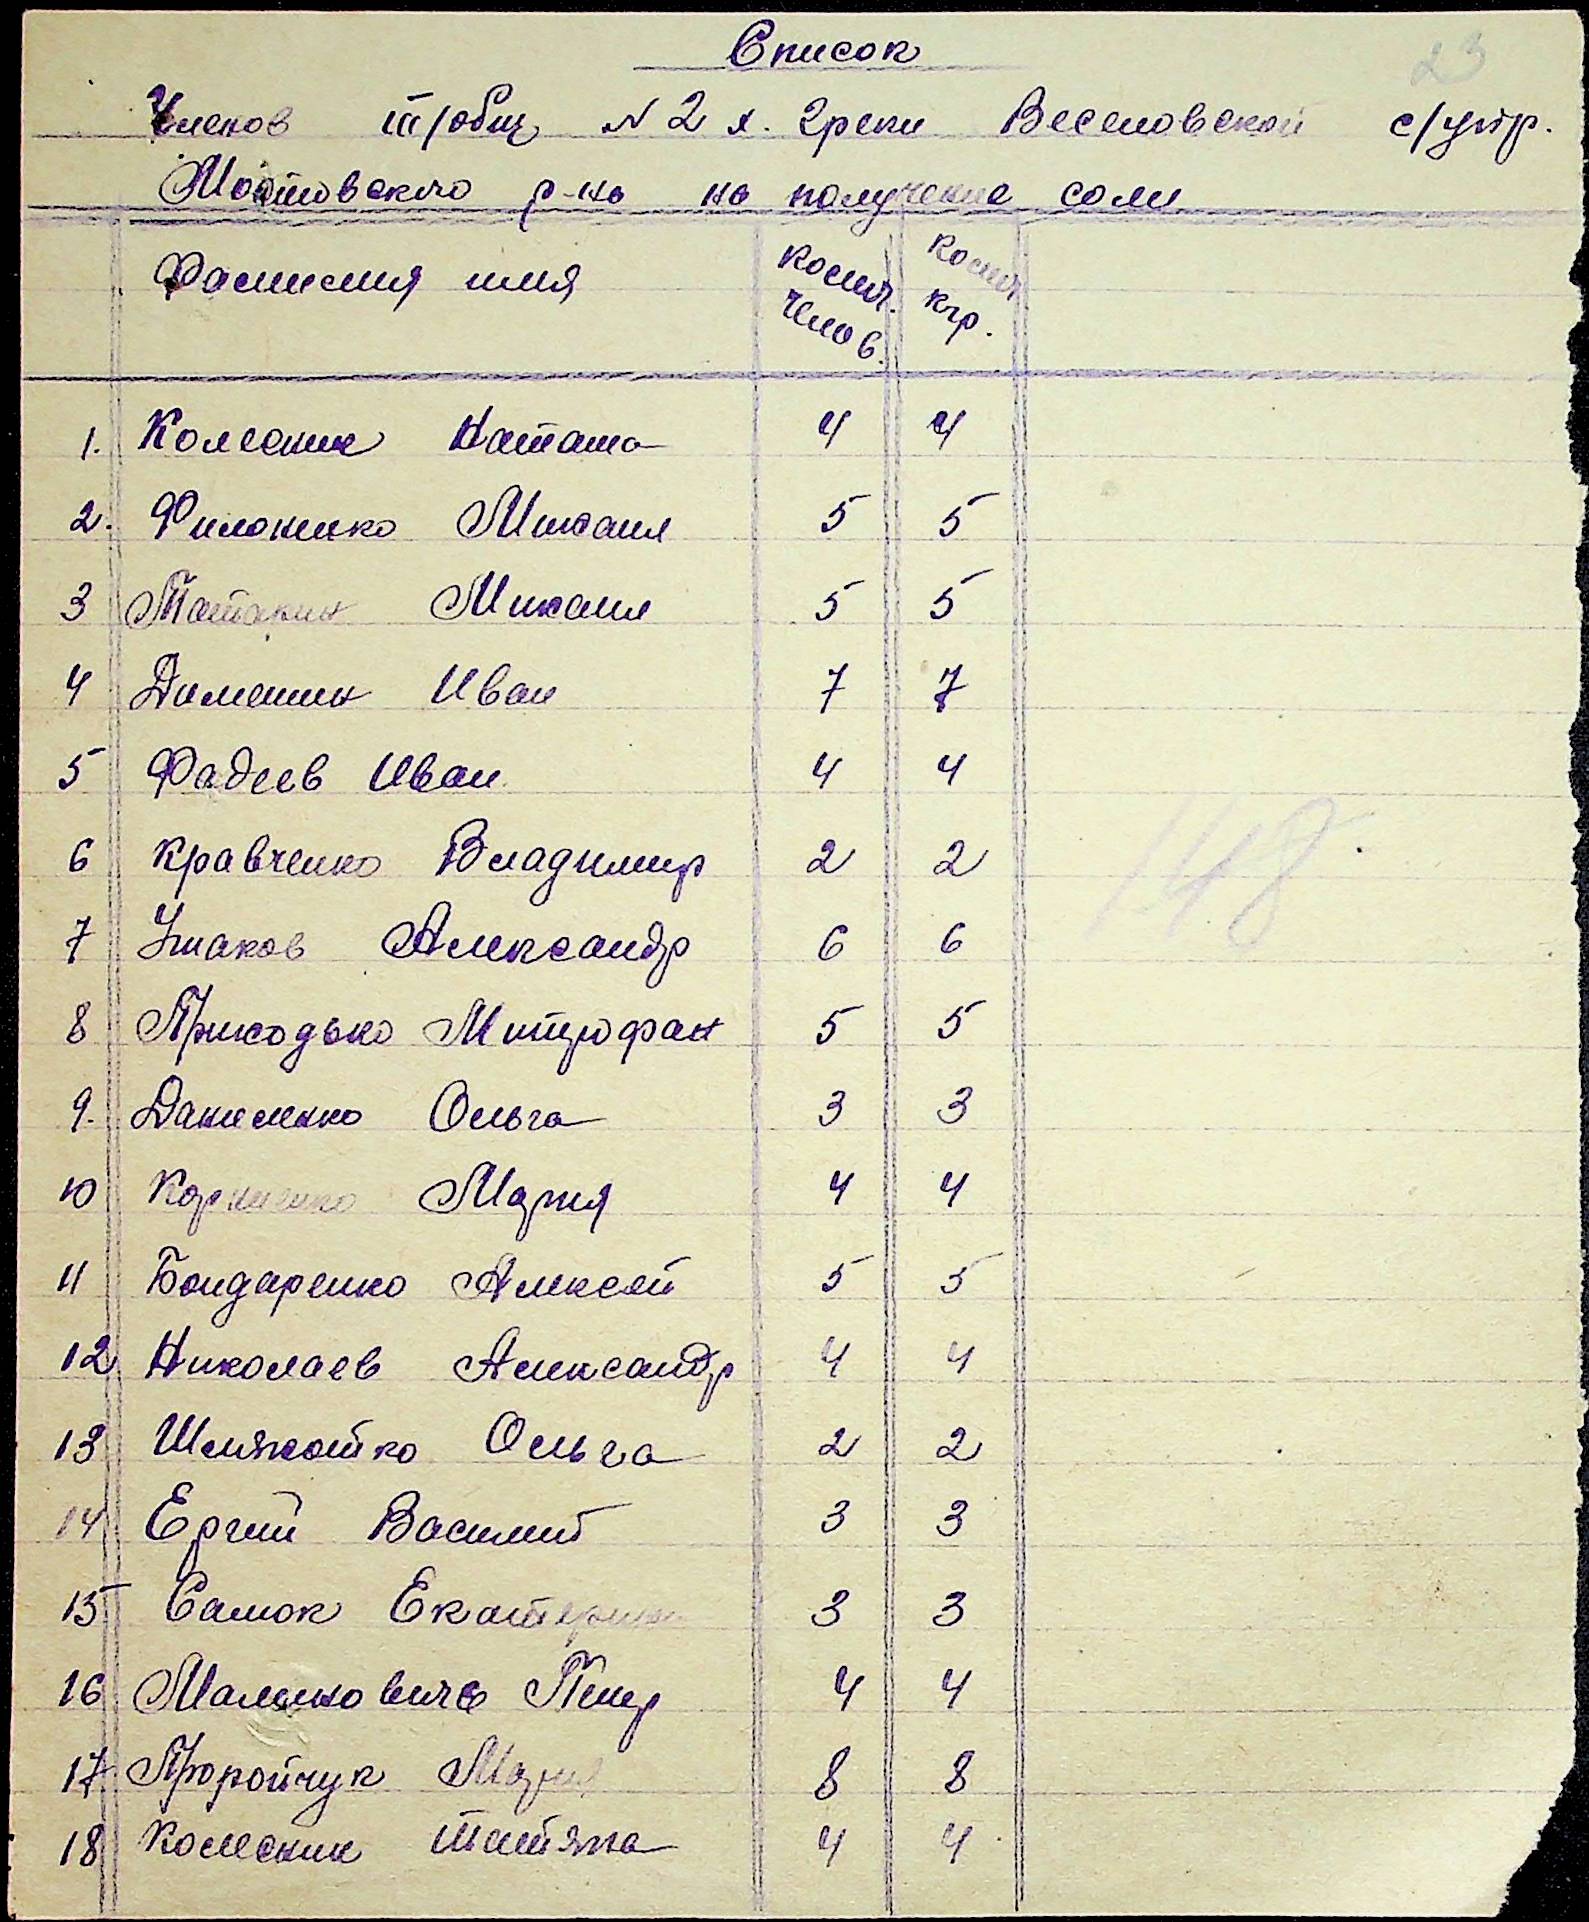 23
Список
Членов т/общ N 2 х. 2реки Веселовской с/упр.
Мостовского р-на на получение соли
Фамилия имя колич. челов. колич кгр.
1. Колесник Наташа 4 4
2. Филоненко Михаил 5 5
3 Татакин Михаил 5 5
4 Диманин Иван 7 7
5 Фадеев Иван 4 4
6 Кравченко Владимир 2 2
7 Ушаков Александр 6 6
8 Приходько Митрофан 5 5
9. Даниленко Ольга 3 3
10 Корниенко Мария 4 4
11 Бондаренко Алексей 5 5
12 Николаев Александр 4 4
13 Шляхотко Ольга 2 2
14 Ергий Василий 3 3
15 Самок Екатерина 3 3
16 Малинович Петр 4 4
17 Мария 8 8
18 Колесник Татяна 4 4
148